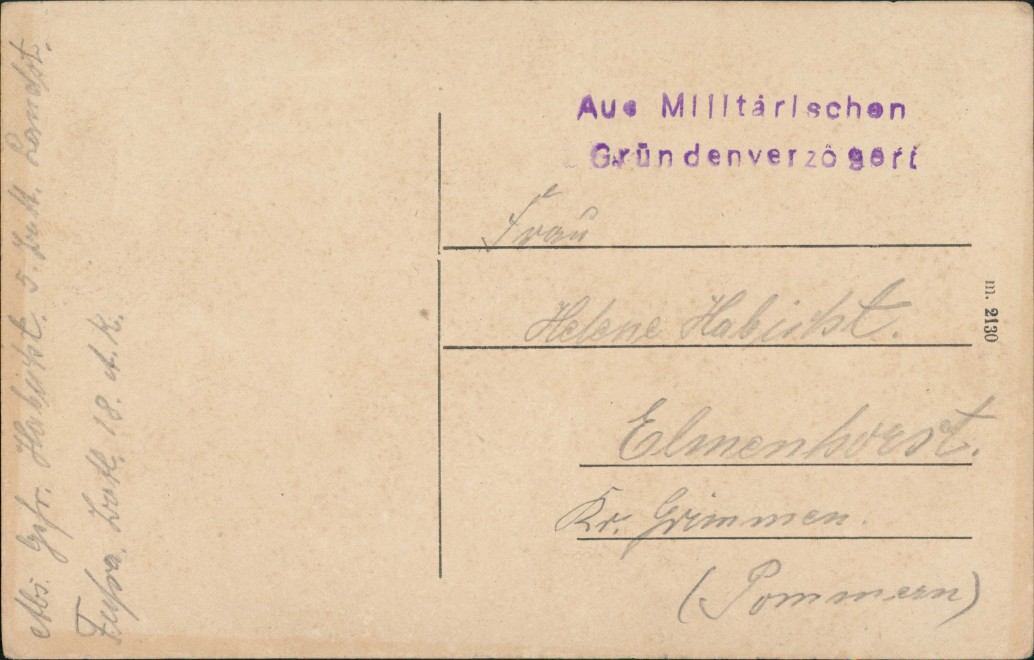 Aus Militärischen
Gründenverzögert
Frau
Helene Habicht.
Elmenhorst.
Kr. Grimmen.
(Pommern)
m. 2130
Abs. Gefr. Habicht. 5. Landst.
18. A.K.